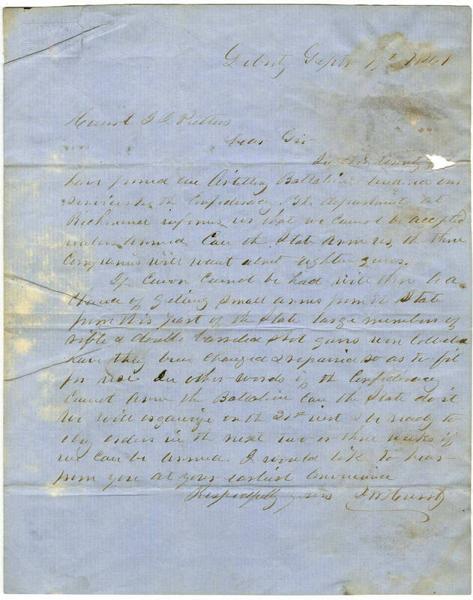 Liberty Sept 1861
J. J. Pettus
Dear Sir
In this County
have formed an Artillery Battalion tendered our
services to the Confederacy. The department at
Richmond informs us that we cannot be accepted
unless armed. Can the State arm us, the three
companies will want about eighteen guns.
If Cannon cannot be had will there be a
chance of getting small arms from the State
from this part of the State large numbers of
rifle & double barreled shot guns were collected
have they been changed & repaired so as to fit
for use. In other words if the Confederacy
cannot arm the Battalion can the State do it.
We will organize on the 20th inst & be ready to
obey orders in the next two or three weeks if
we can be armed. I would like to hear
from you at your earliest convenience
Respectfully yours